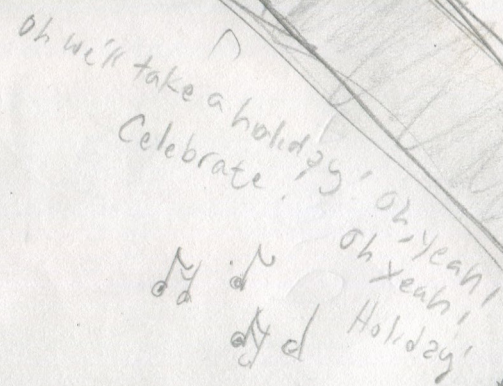 Oh we'll take a holiday! Oh, yeah!
Celebrate! Oh yeah!
Holiday!